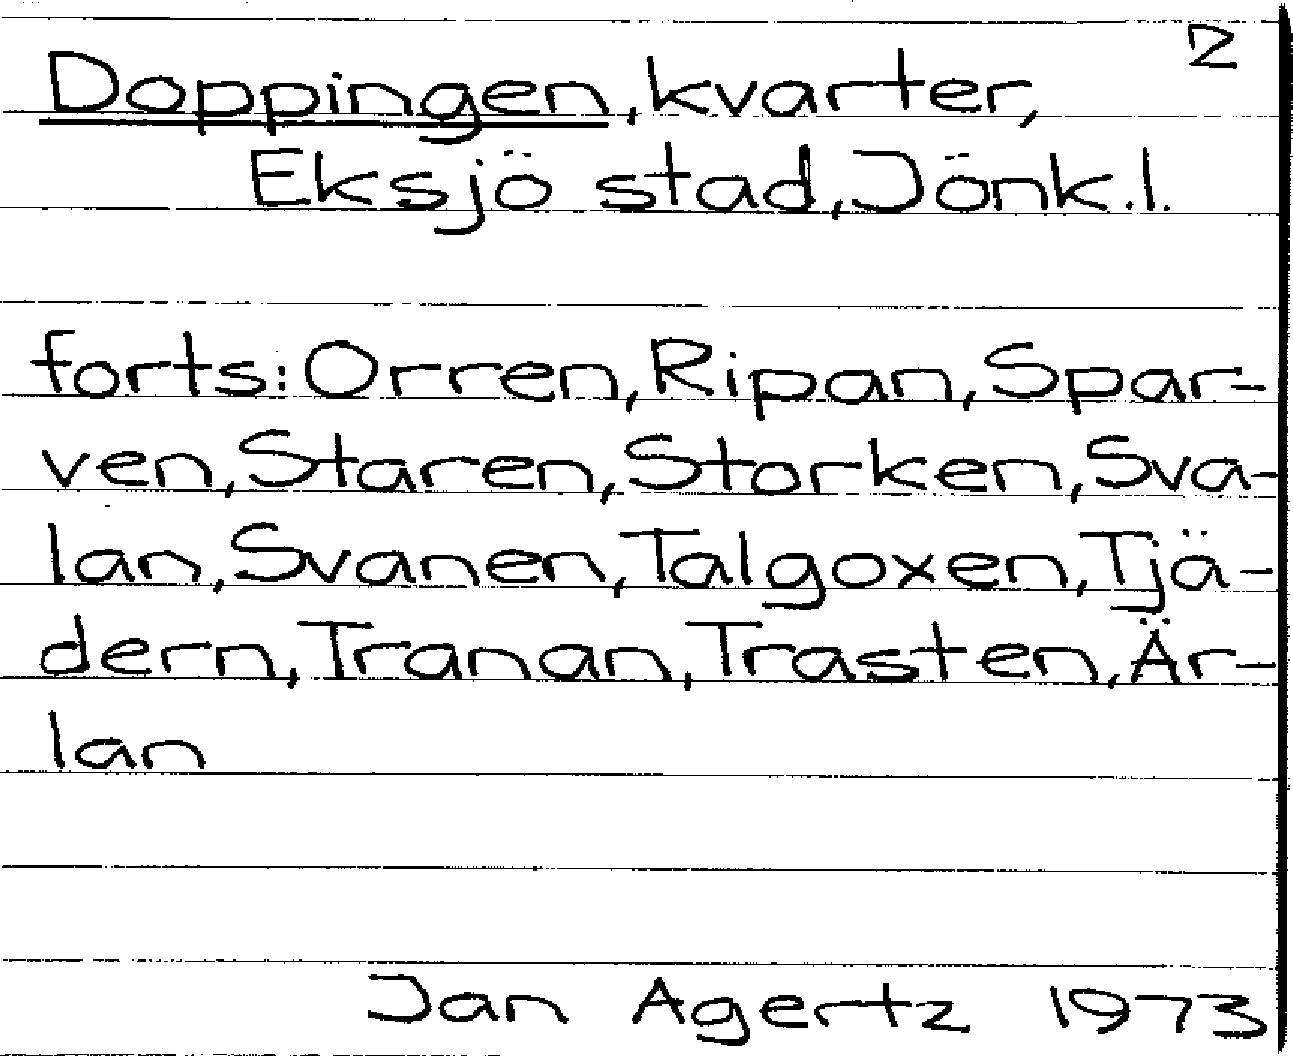 2
Doppingen, kvarter,
Eksjö stad, Jönk.l.
forts: Orren, Ripan, Spar-
ven, Staren, Storken, Sva-
lan, Svanen, Talgoxen, Tjä-
dern, Tranan, Trasten, Är-
lan
Jan Agertz 1973